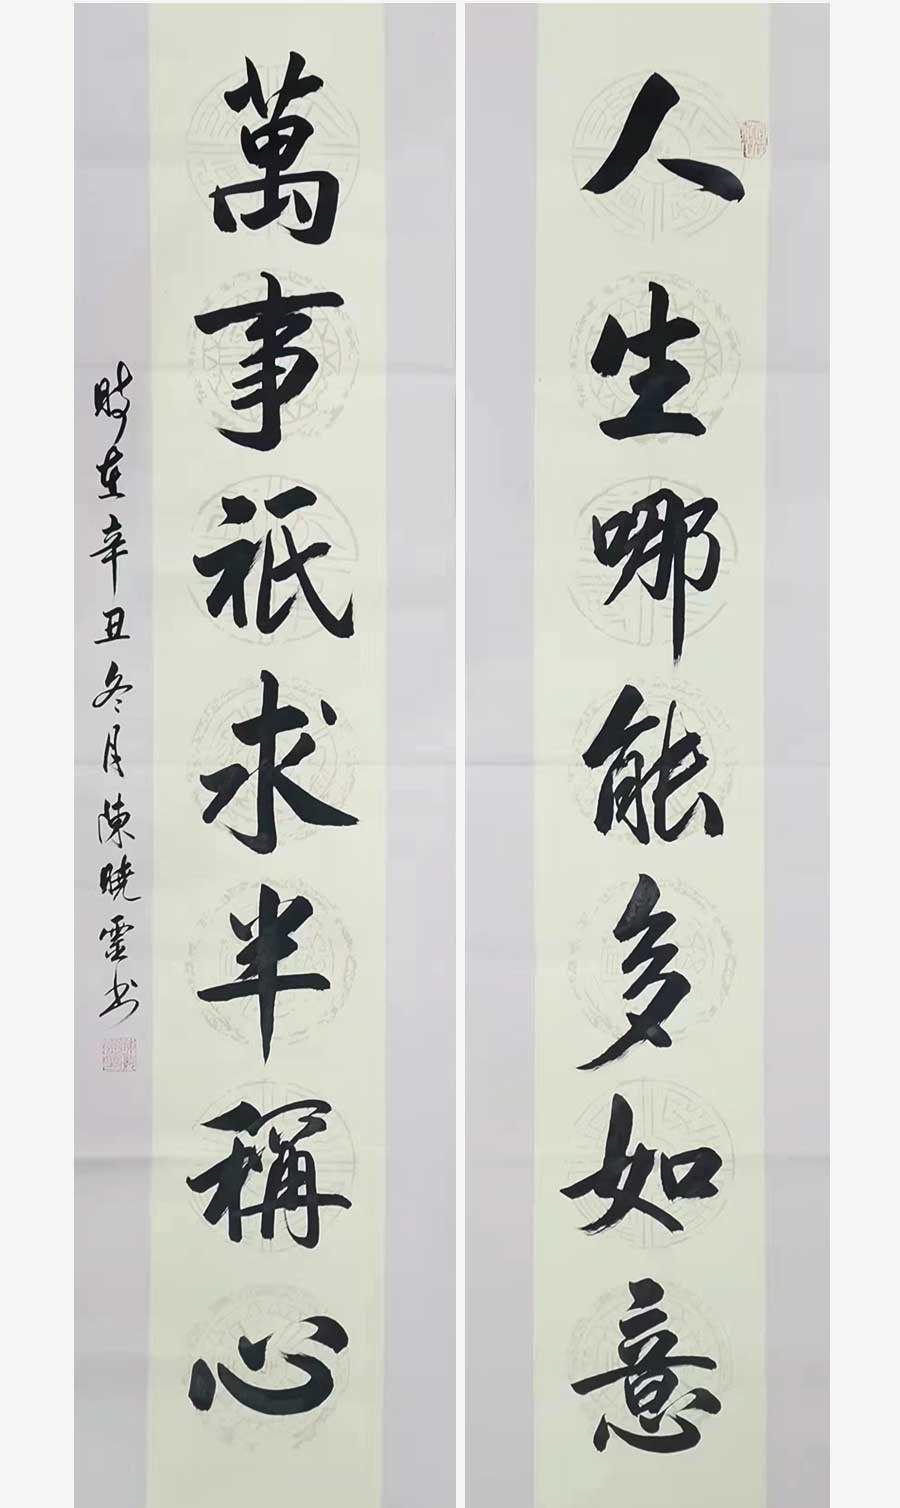 人生哪能多如意
萬事祇求半稱心
時在辛丑冬月陳曉雲书